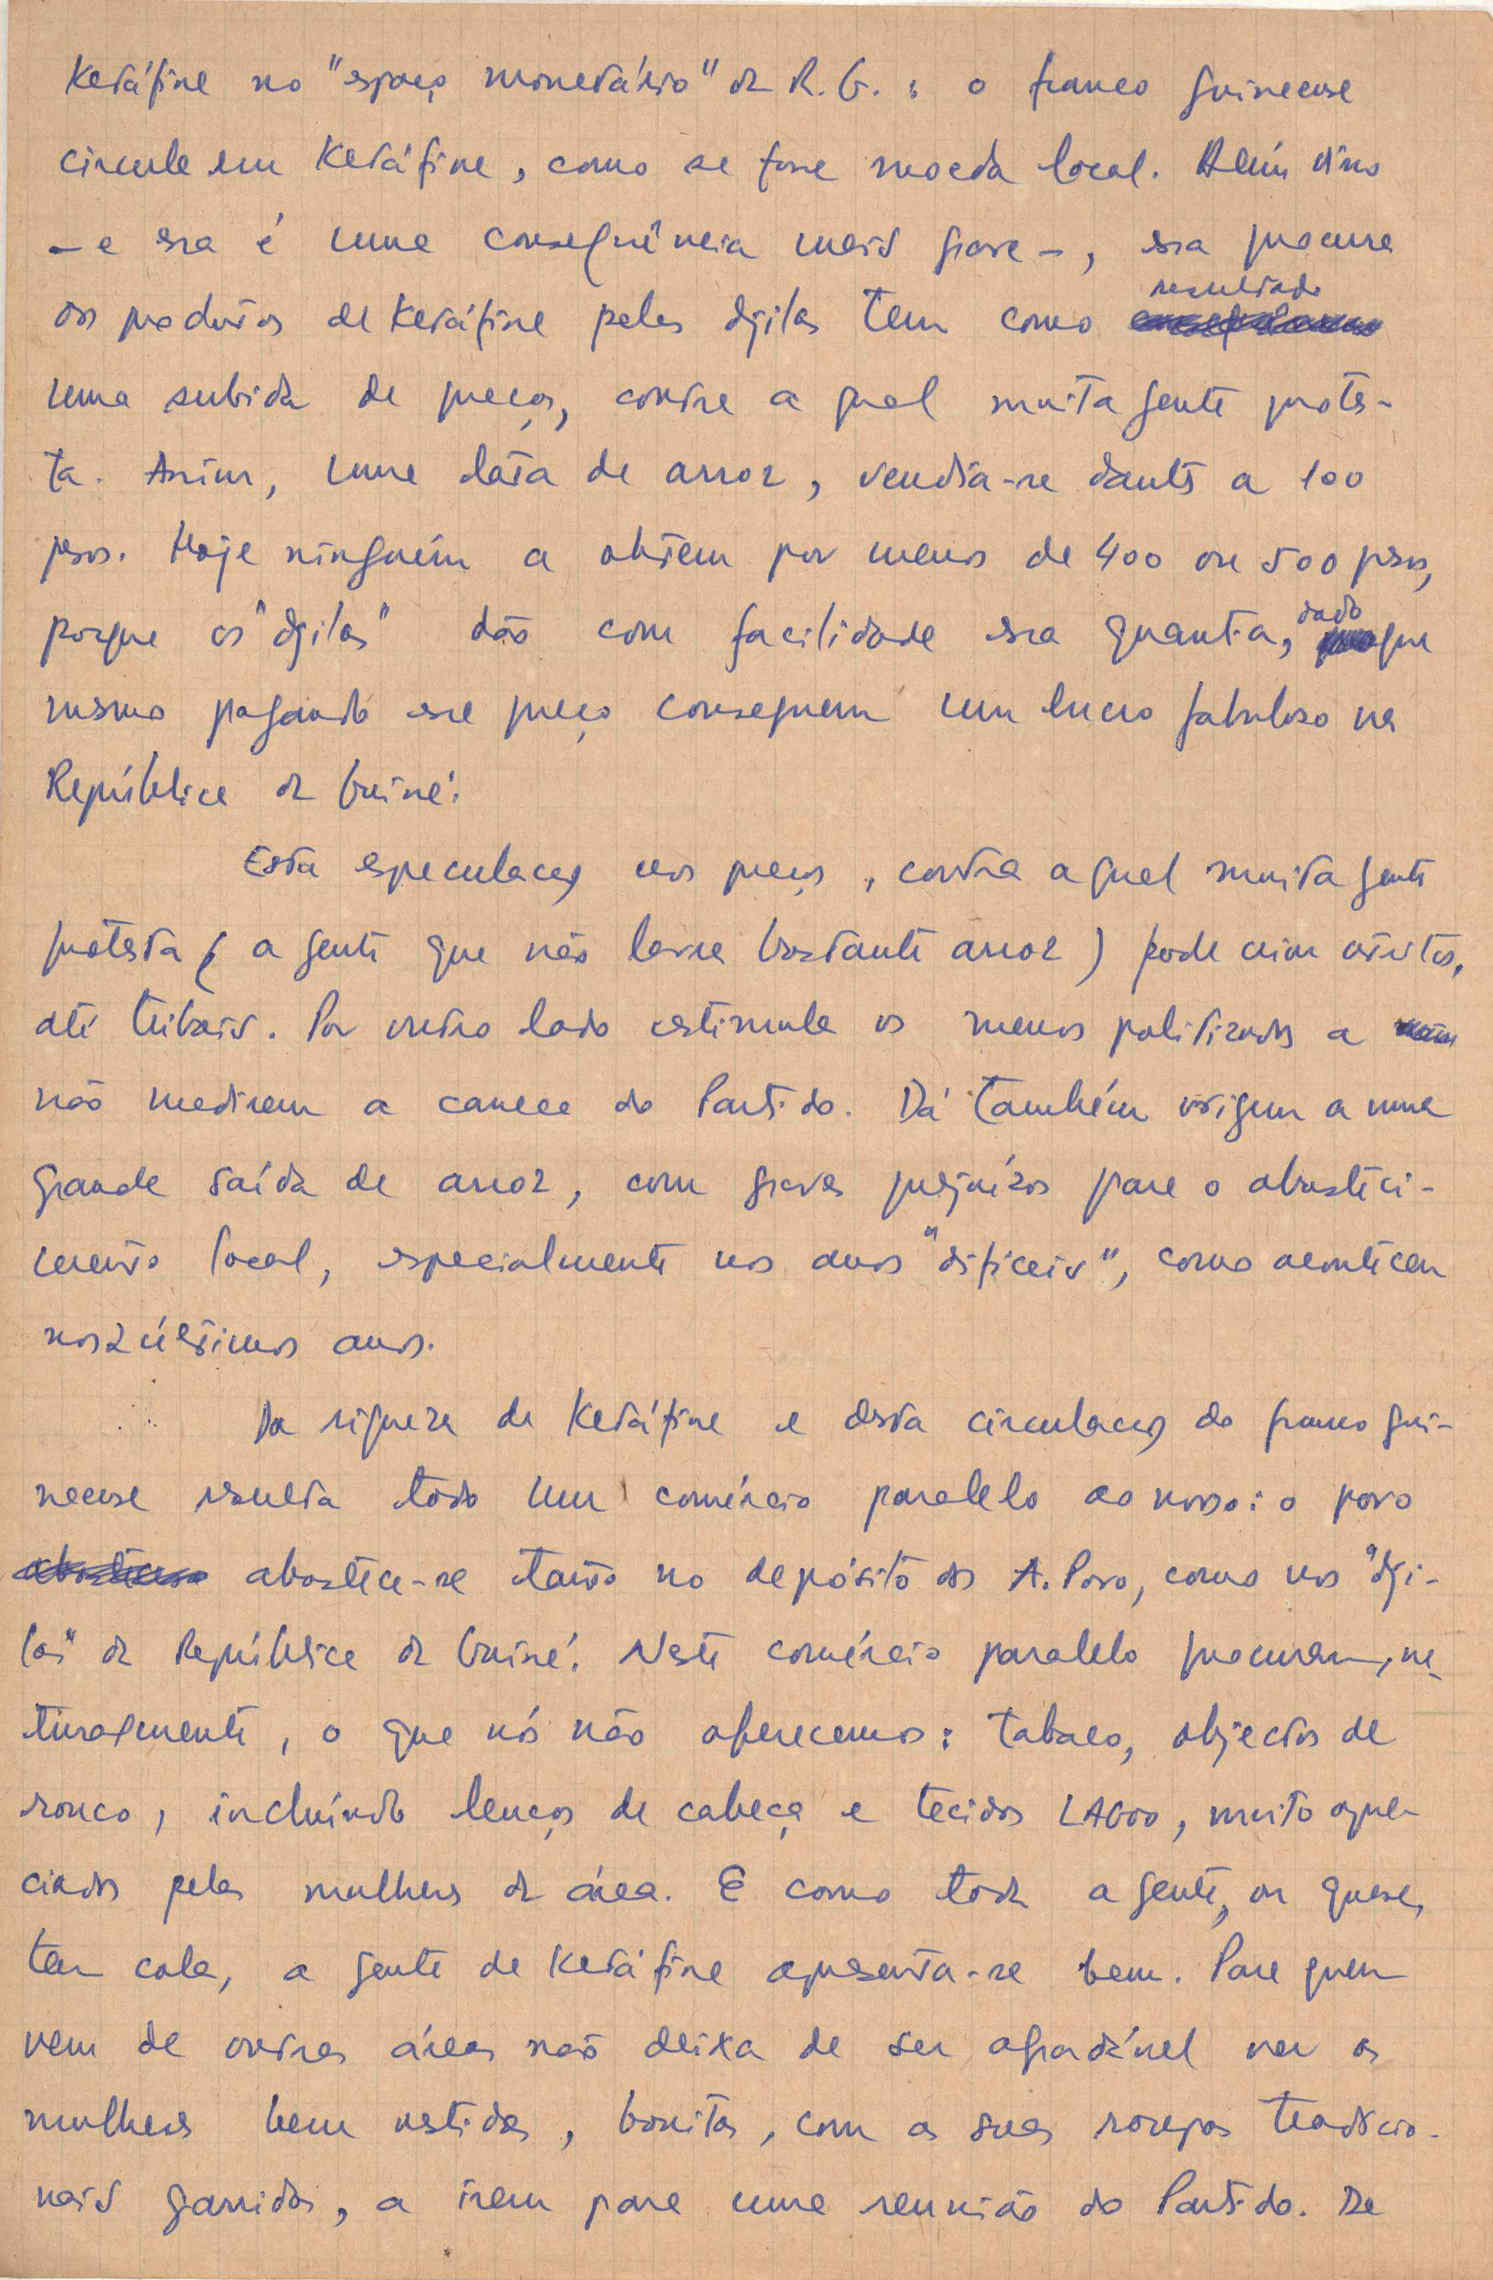 Ketáfine no "espaço monetário" da R.G.: o franco guineense
circula em Ketáfine, como se fosse moeda local. Além disso
– e essa é uma consequência mais grave –, essa procura
dos produtos de Ketáfine pelos djilas tem como resultado
uma subida de preços, contra a qual muita gente protes-
ta. Assim, uma lata de arroz, vendia-se dantes a 100
pesos. Hoje ninguém a obtem por menos de 400 ou 500 pesos,
porque os "djilas" dão com facilidade essa quantia, dado que
mesmo pagando esse preço conseguem um lucro fabuloso na
República da Guiné.
Esta especulação nos preços, contra a qual muita gente
protesta (a gente que não lavra bastante arroz) pode criar atritos,
até tribais. Por outro lado estimula os menos politizados a
não medirem a caneca do Partido. Dá também origem a uma
grande saída de arroz, com graves prejuízos para o abasteci-
mento local, especialmente nos anos "difíceis", como aconteceu
nos 2 últimos anos.
Da riqueza de Ketáfine e desta circulação do franco gui-
neense resulta todo um comércio paralelo ao nosso: o povo
abastece-se tanto no depósito dos A. Povo, como nos "dji-
las" da República da Guiné. Neste comércio paralelo procuram, na-
turalmente, o que nós não oferecemos: tabaco, objectos de
ronco, incluíndo lenços de cabeça e tecidos LAGOO, muito apre-
ciados pelas mulheres da área. E como toda a gente, ou quase,
tem cola, a gente de Ketáfine apresenta-se bem. Para quem
vem de outras áreas não deixa de ser agradável ver as
mulheres bem vestidas, bonitas, com as suas roupas tradicio-
nais garridas, a irem para uma reunião do Partido. De